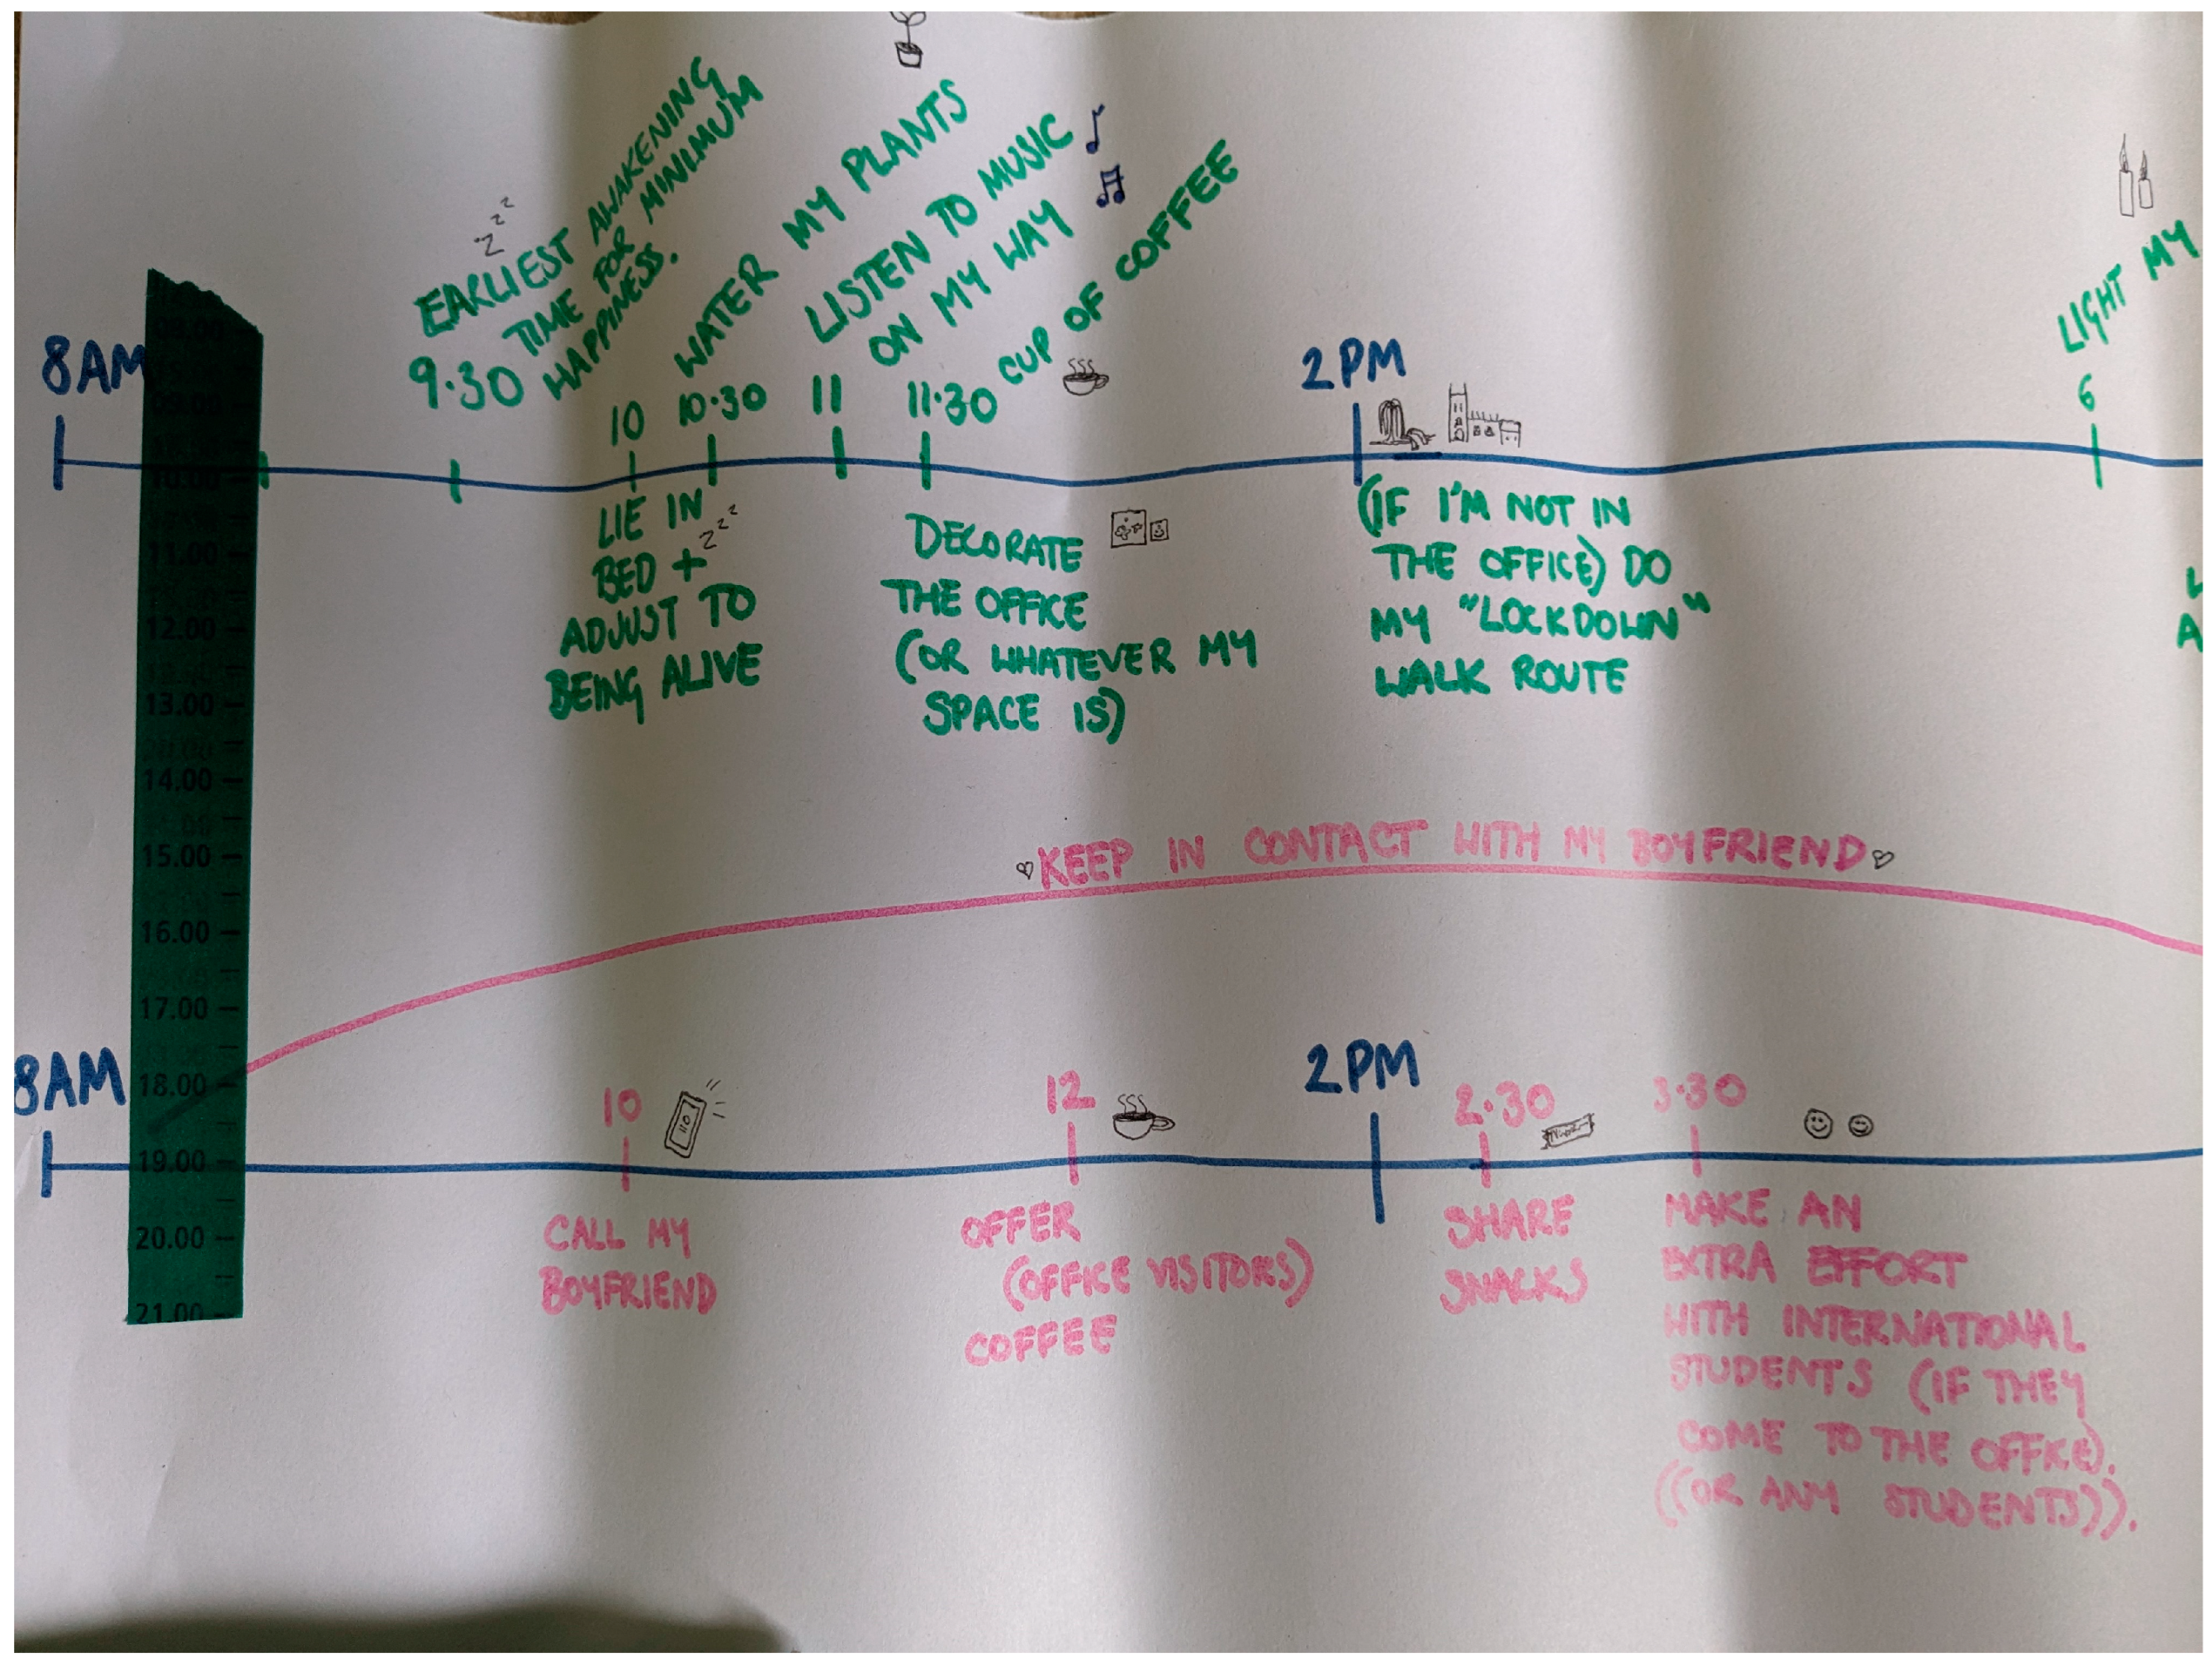 8AM
EARLIEST AWAKENING
9.30 TIME FOR MINIMUM
HAPPINESS.
10
10.30
WATER MY PLANTS
11
LISTEN TO MUSIC
ON MY WAY
11.30
CUP OF COFFEE
2PM
6
LIGHT MY
LIE IN
BED + zzz
ADJUST TO
BEING ALIVE
DECORATE
THE OFFICE
(OR WHATEVER MY
SPACE IS)
(IF I'M NOT IN
THE OFFICE) DO
MY "LOCKDOWN"
WALK ROUTE
08.00
09.00
10.00
11.00
12.00
13.00
14.00
15.00
16.00
17.00
18.00
19.00
20.00
21.00
KEEP IN CONTACT WITH MY BOYFRIEND
8AM
10
CALL MY
BOYFRIEND
12
OFFER
(OFFICE VISITORS)
COFFEE
2PM
2.30
SHARE
SNACKS
3.30
MAKE AN
EXTRA EFFORT
WITH INTERNATIONAL
STUDENTS (IF THEY
COME TO THE OFFICE).
((OR ANY STUDENTS)).